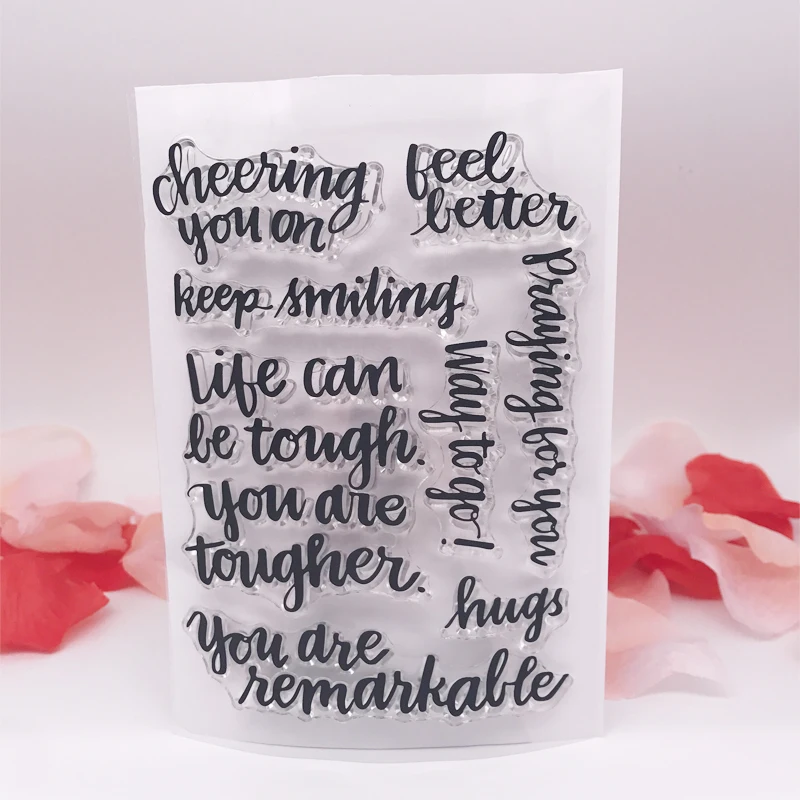 cheering
you on
feel
better
keep smiling
life can
be tough.
you are
tougher.
Way to go!
Praying for you
hugs
You are
remarkable